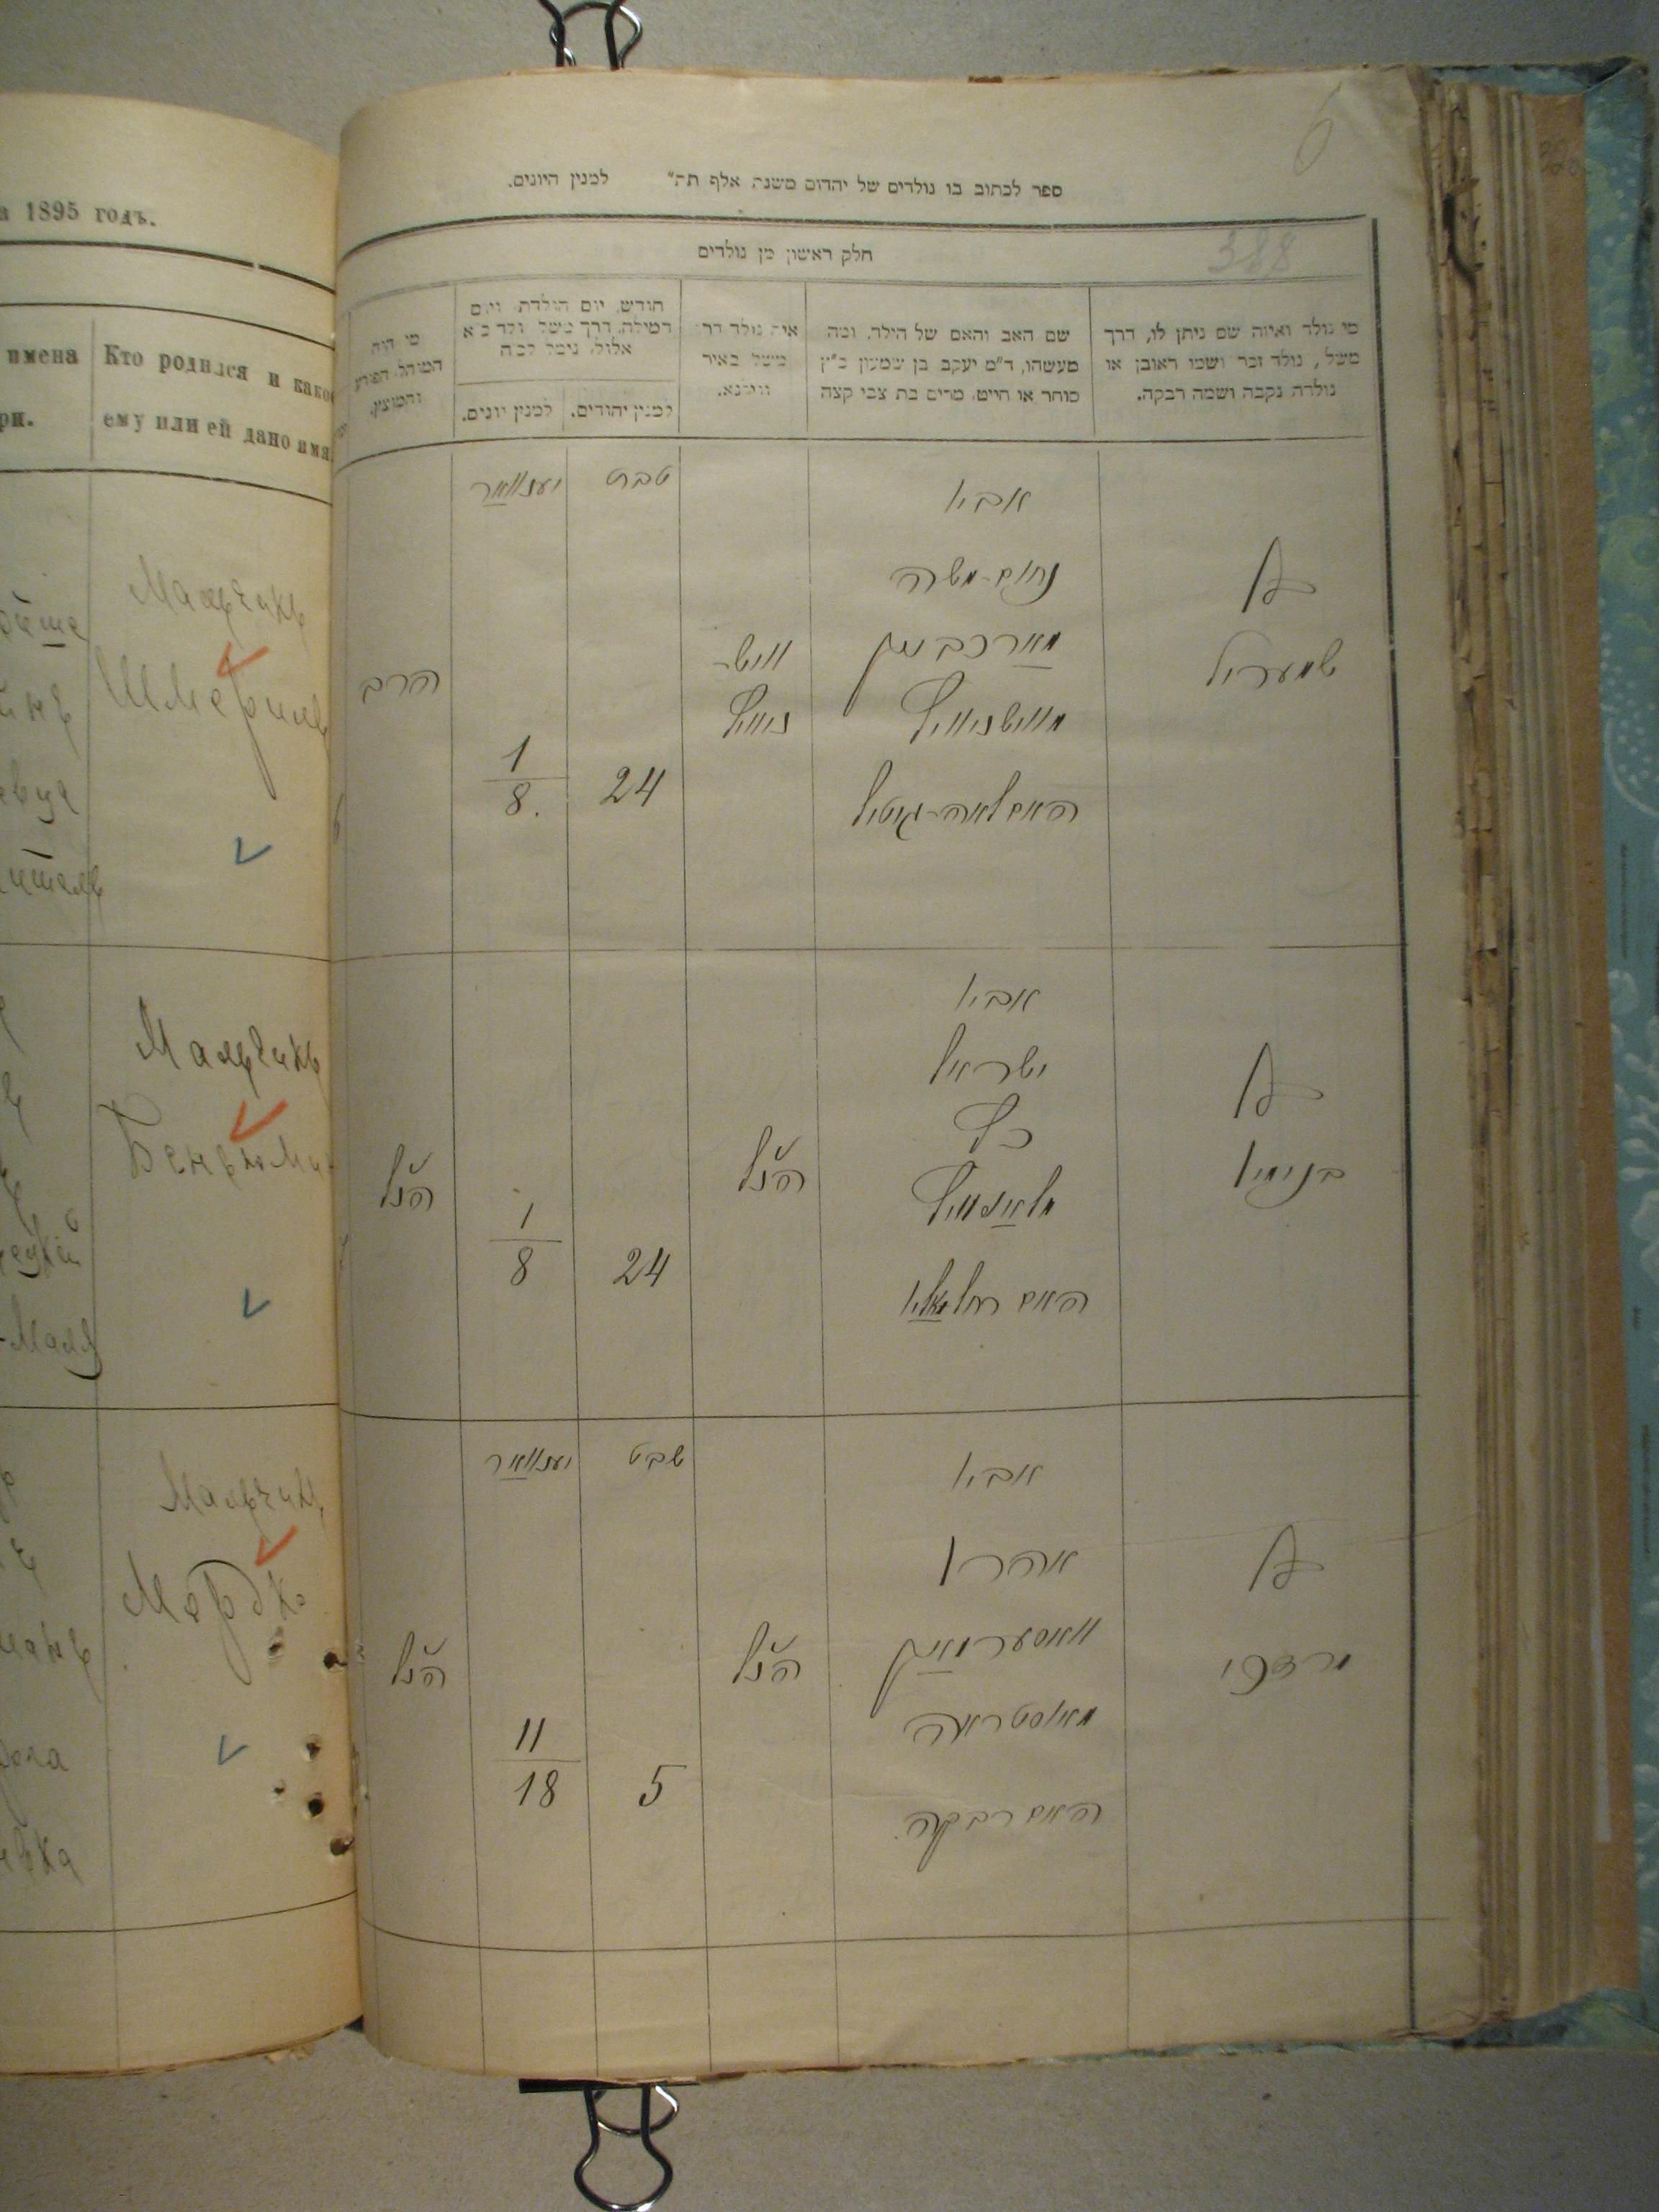 6
ספר לכתוב בו נולדים של יהדום משנת אלף תת״ למנין היונים.
388
חלק ראשון מן נולדים
מי נולד ואיזה שם ניתן לו, דרך
משל, נולד זכר ושמו ראובן או
נולדה נקבה ושמה רבקה.
שם האב והאם של הילד, ומה
מעשהו, ד״מ יעקב בן שמעון כ״ץ
סוחר או חייט, מרים בת צבי קצה
איה נולד דרך
משל באיר
ווילנא.
חודש, יום הולדת, ויום
המילה, דרך משל, ילד כ״א
אלול, נימל כ״ח
למנין יהודים.
למנין יונים.
מי היה
המוהל, הפורע
והמוצץ.
ז
שמעריל
אביו
נחום-משה
מווישניוויץ
האם לאה-גיטיל
וויש-
ניוויץ
טבת
24
יענוואר
1
8.
הרב
ז
בנימין
אביו
ישראל
כץ
האם רחל
הנ״ל
24
1
8
הנ״ל
ז
מרדכי
אביו
אהרן
וואסערמאן
מאוסטראה
האם רבקה
הנ״ל
שבט
5
יענוואר
11
18
הנ״ל
а 1895 годъ.
имена
ри.
Кто родился и како
ему или ей дано имя
Мальчикъ
Шмериль
Мальчикъ
Беньюми
-Маля
Мальчикъ
Мордко